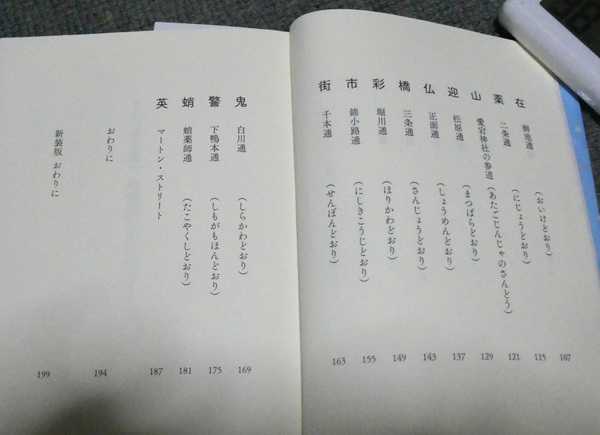 在 御池通 (おいけどおり) 107
薬 二条通 (にじょうどおり) 115
山 愛宕神社の参道 (あたごじんじゃのさんどう) 121
迎 松原通 (まつばらどおり) 129
仏 正面通 (しょうめんどおり) 137
橋 三条通 (さんじょうどおり) 143
彩 堀川通 (ほりかわどおり) 149
市 錦小路通 (にしきこうじどおり) 155
街 千本通 (せんぼんどおり) 163
鬼 白川通 (しらかわどおり) 169
警 下鴨本通 (しもがもほんどおり) 175
蛸 蛸薬師通 (たこやくしどおり) 181
英 マートン・ストリート 187
おわりに 194
新装版 おわりに 199